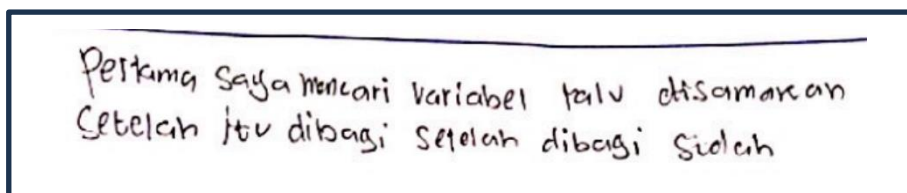 Pertama saya mencari variabel lalu disamakan
Setelah itu dibagi setelah dibagi